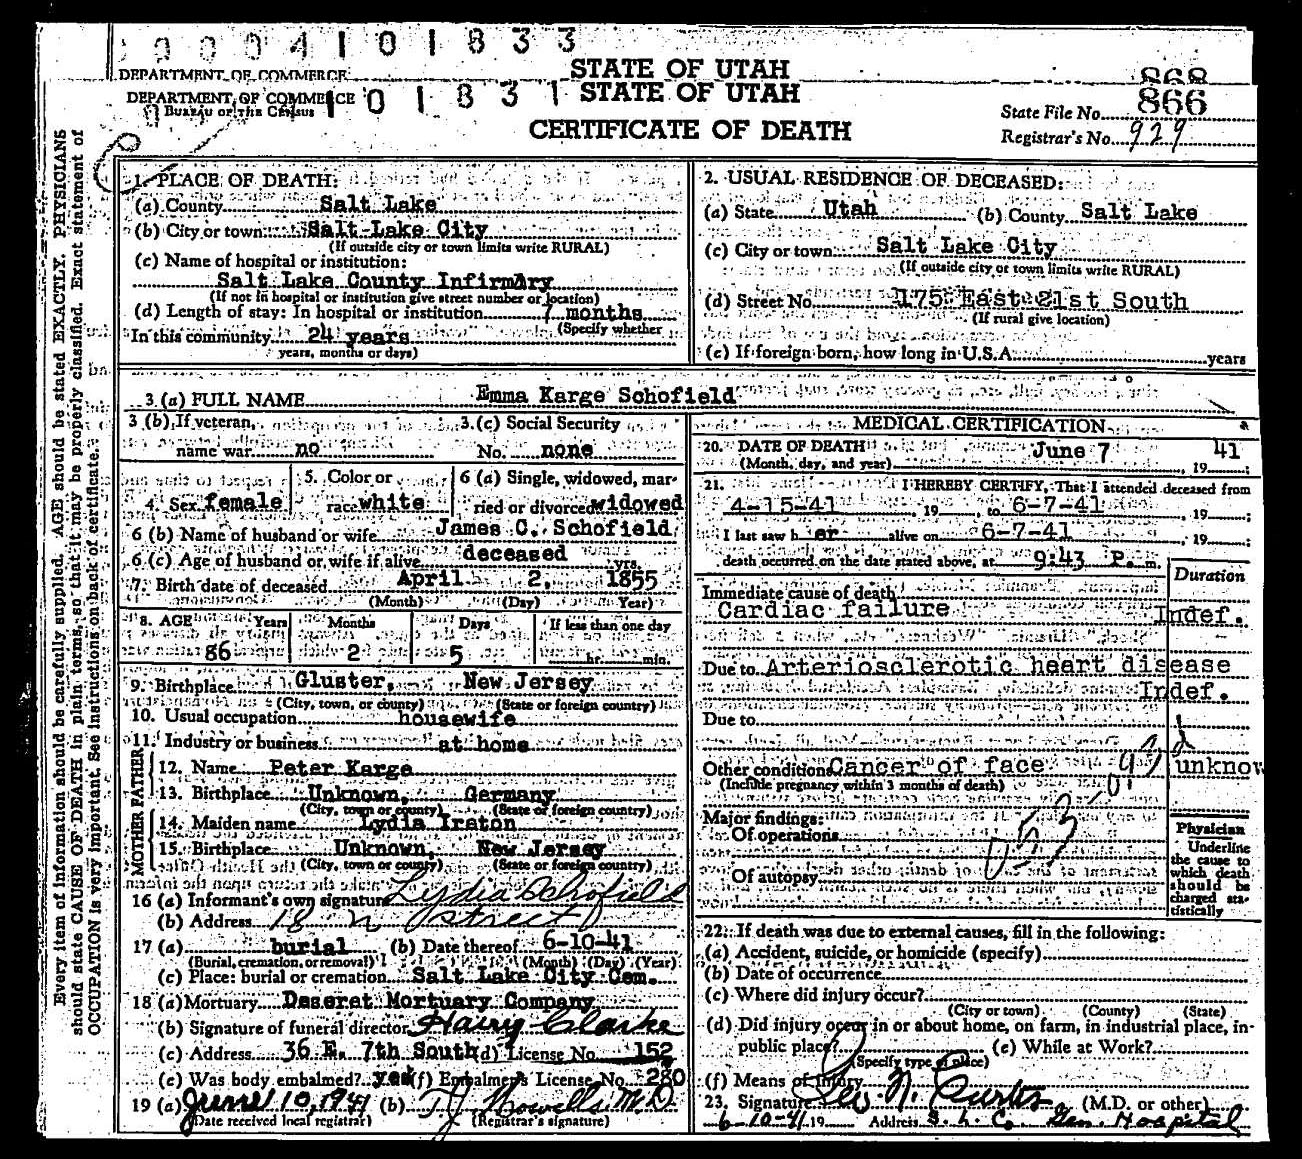 0004101833
DEPARTMENT OF COMMERCE
STATE OF UTAH
868
DEPARTMENT OF COMMERCE
101831
STATE OF UTAH
866
BUREAU OF THE CENSUS
State File No.
CERTIFICATE OF DEATH
Registrar's No. 929
Every item of information should be carefully supplied. AGE should be stated EXACTLY. PHYSICIANS
should state CAUSE OF DEATH in plain terms, so that it may be properly classified. Exact statement of
OCCUPATION is very important. See instructions on back of certificate.
1. PLACE OF DEATH:
(a) County Salt Lake
(b) City or town Salt Lake City
(If outside city or town limits write RURAL)
(c) Name of hospital or institution:
Salt Lake County Infirmary
(If not in hospital or institution give street number or location)
(d) Length of stay: In hospital or institution 7 months
(Specify whether
In this community 24 years
years, months or days)
2. USUAL RESIDENCE OF DECEASED:
(a) State Utah (b) County Salt Lake
(c) City or town Salt Lake City
(If outside city or town limits write RURAL)
(d) Street No. 175 East 21st South
(If rural give location)
(e) If foreign born, how long in U.S.A. years
3 (a) FULL NAME Emma Karge Schofield
3 (b) If veteran, 3. (c) Social Security
name war no No. none
4. Sex female 5. Color or race white 6 (a) Single, widowed, married or divorced widowed
6 (b) Name of husband or wife James C. Schofield
6 (c) Age of husband or wife if alive deceased yrs.
7. Birth date of deceased April 2, 1855
(Month) (Day) Year)
8. AGE Years Months Days If less than one day
86 2 5 hr. min.
9. Birthplace Gluster, New Jersey
(City, town, or county) (State or foreign country)
10. Usual occupation housewife
11. Industry or business at home
FATHER
12. Name Peter Karge
13. Birthplace Unknown, Germany
(City, town or county) (State or foreign country)
MOTHER
14. Maiden name Lydia Iraton
15. Birthplace Unknown, New Jersey
(City, town or county) (State or foreign country)
16 (a) Informant's own signature Lydia Schofield
(b) Address 18 N street
17 (a) burial (b) Date thereof 6-10-41
(Burial, cremation, or removal) (Month) (Day) (Year)
(c) Place: burial or cremation Salt Lake City Cem.
18 (a) Mortuary Deseret Mortuary Company
(b) Signature of funeral director Harry Clarke
(c) Address 36 E. 7th South (d) License No. 152
(e) Was body embalmed? yes (f) Embalmer's License No. 280
19 (a) June 10, 1941 (b) T J Howells M.D.
(Date received local registrar) (Registrar's signature)
MEDICAL CERTIFICATION
20. DATE OF DEATH June 7, 1941;
(Month, day, and year)
21. I HEREBY CERTIFY, That I attended deceased from
4-15-41, 19, to 6-7-41, 19;
I last saw her alive on 6-7-41, 19;
death occurred on the date stated above, at 9:43 P. m.
Duration
Immediate cause of death
Cardiac failure Indef.
Due to Arteriosclerotic heart disease
Indef.
Due to
Other conditions Cancer of face unknow
(Include pregnancy within 3 months of death)
Major findings:
Of operations
Of autopsy
053
Physician
Underline
the cause to
which death
should be
charged statistically
22. If death was due to external causes, fill in the following:
(a) Accident, suicide, or homicide (specify)
(b) Date of occurrence
(c) Where did injury occur?
(City or town) (County) (State)
(d) Did injury occur in or about home, on farm, in industrial place, in
public place? (e) While at Work?
(Specify type of place)
(f) Means of injury
23. Signature Leo N. Curtis (M.D. or other)
6-10-41 19 Address S. L. C. Gen. Hospital